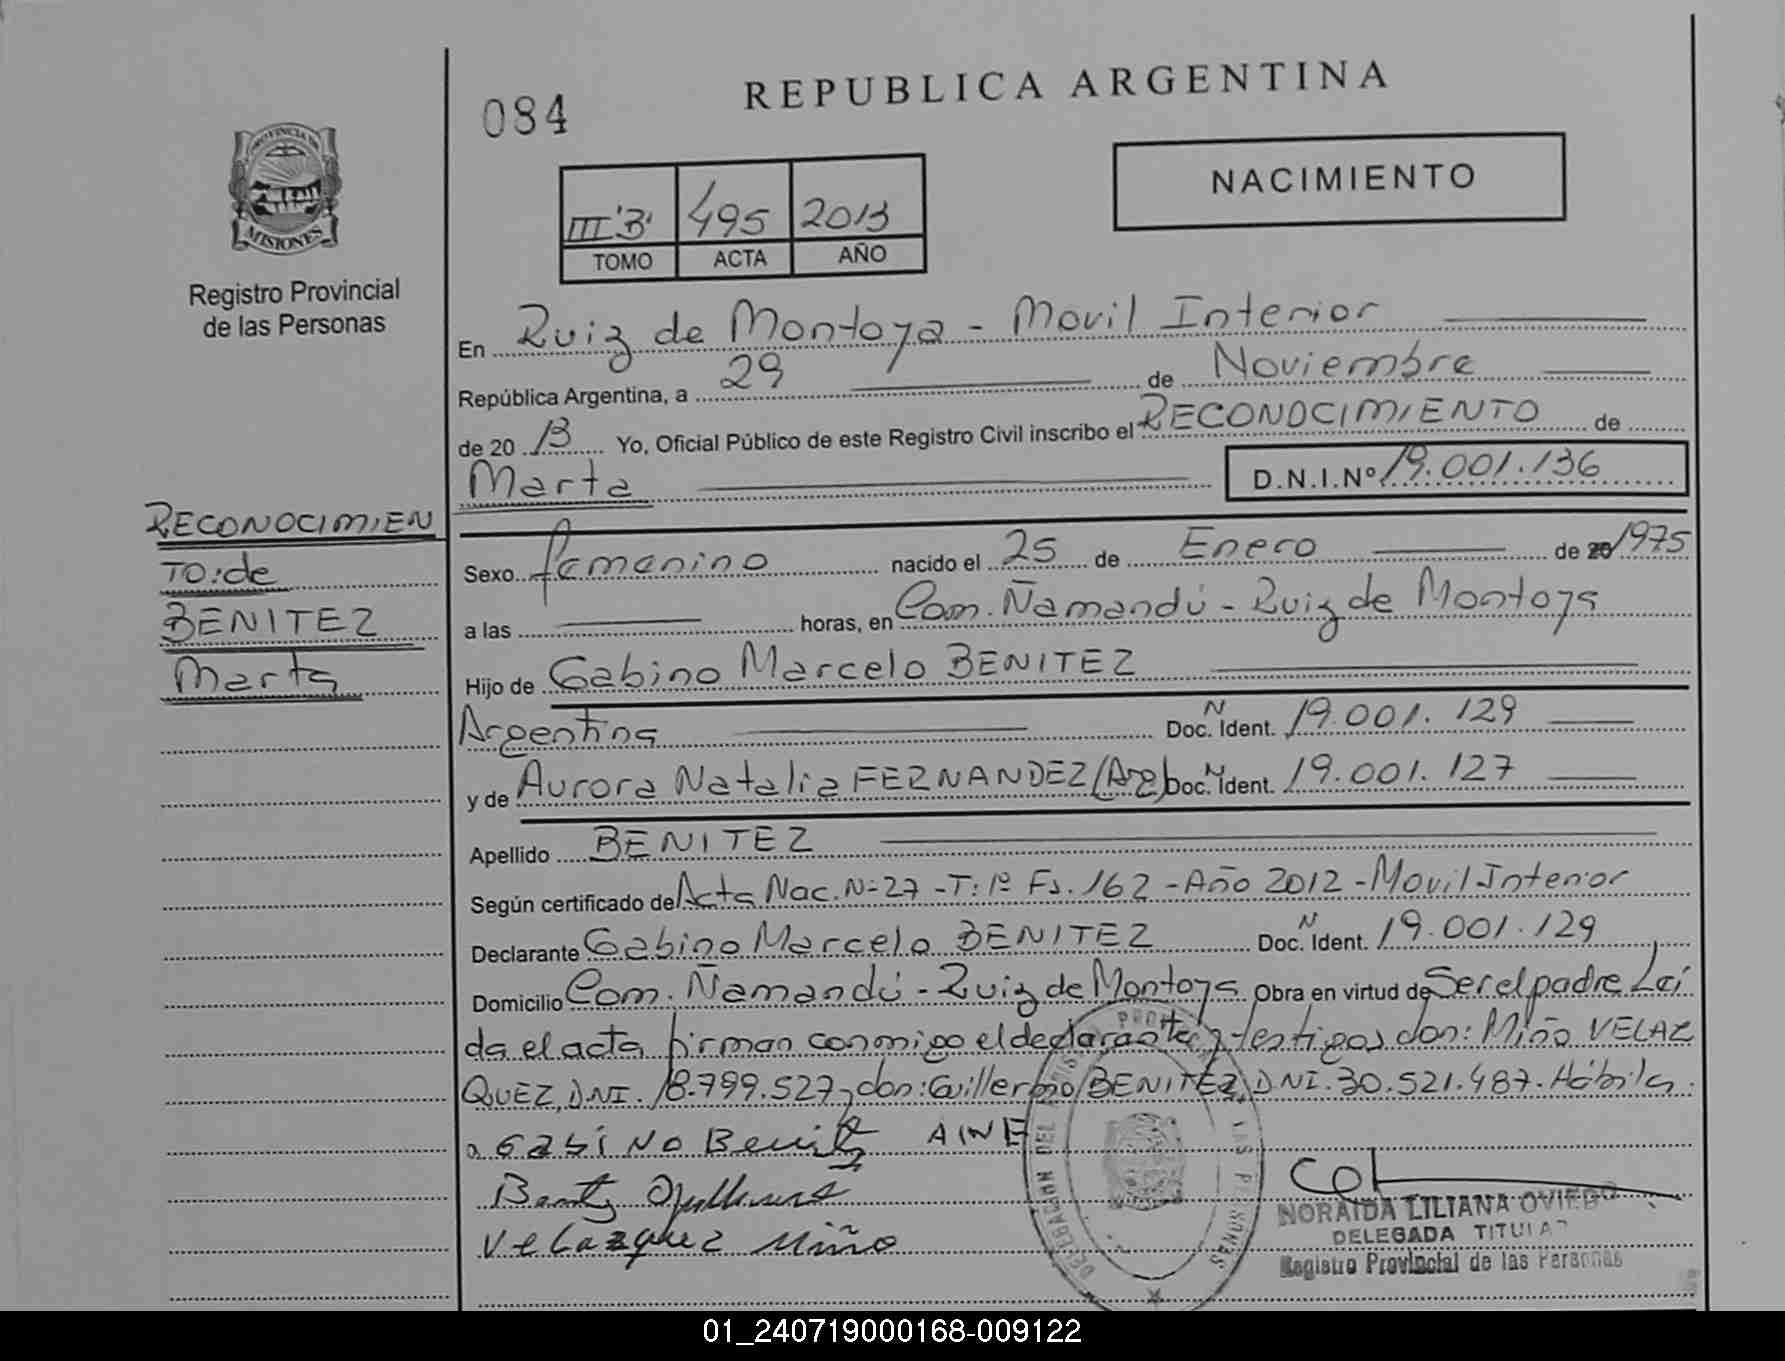 REPUBLICA ARGENTINA
084
NACIMIENTO
III 'B' 495 2013
TOMO ACTA AÑO
PROVINCIA DE
MISIONES
Registro Provincial
de las Personas
En Ruiz de Montoya - Movil Interior
República Argentina, a 29 de Noviembre
de 20 13 Yo, Oficial Público de este Registro Civil inscribo el RECONOCIMIENTO de
Marta D.N.I.Nº 19.001.136
RECONOCIMIEN
TO: de
BENITEZ
Marta
Sexo femenino nacido el 25 de Enero de 20 1975
a las horas, en Com. Ñamandú - Ruiz de Montoya
Hijo de Gabino Marcelo BENITEZ
Argentina Doc. N Ident. 19.001.129
y de Aurora Natalia FERNANDEZ (Arg) Doc. N Ident. 19.001.127
Apellido BENITEZ
Según certificado de Acta Nac. N=27 - T: 1º Fs. 162 - Año 2012 - Movil Interior
Declarante Gabino Marcelo BENITEZ Doc. N Ident. 19.001.129
Domicilio Com. Ñamandú - Ruiz de Montoya Obra en virtud de Ser el padre Leí
da el acta firman conmigo el declarante y testigos don: Miño VELAZ
QUEZ, DNI. 18.799.527 y don: Guillermo BENITEZ, DNI. 30.521.487. Hábiles.
GabiNo Benitez AINE
Velazquez Miño
DELEGACION DEL REGISTRO PROVINCIAL DE LAS PERSONAS
NORAIDA LILIANA OVIEDO
DELEGADA TITULAR
Registro Provincial de las Personas
01_240719000168-009122